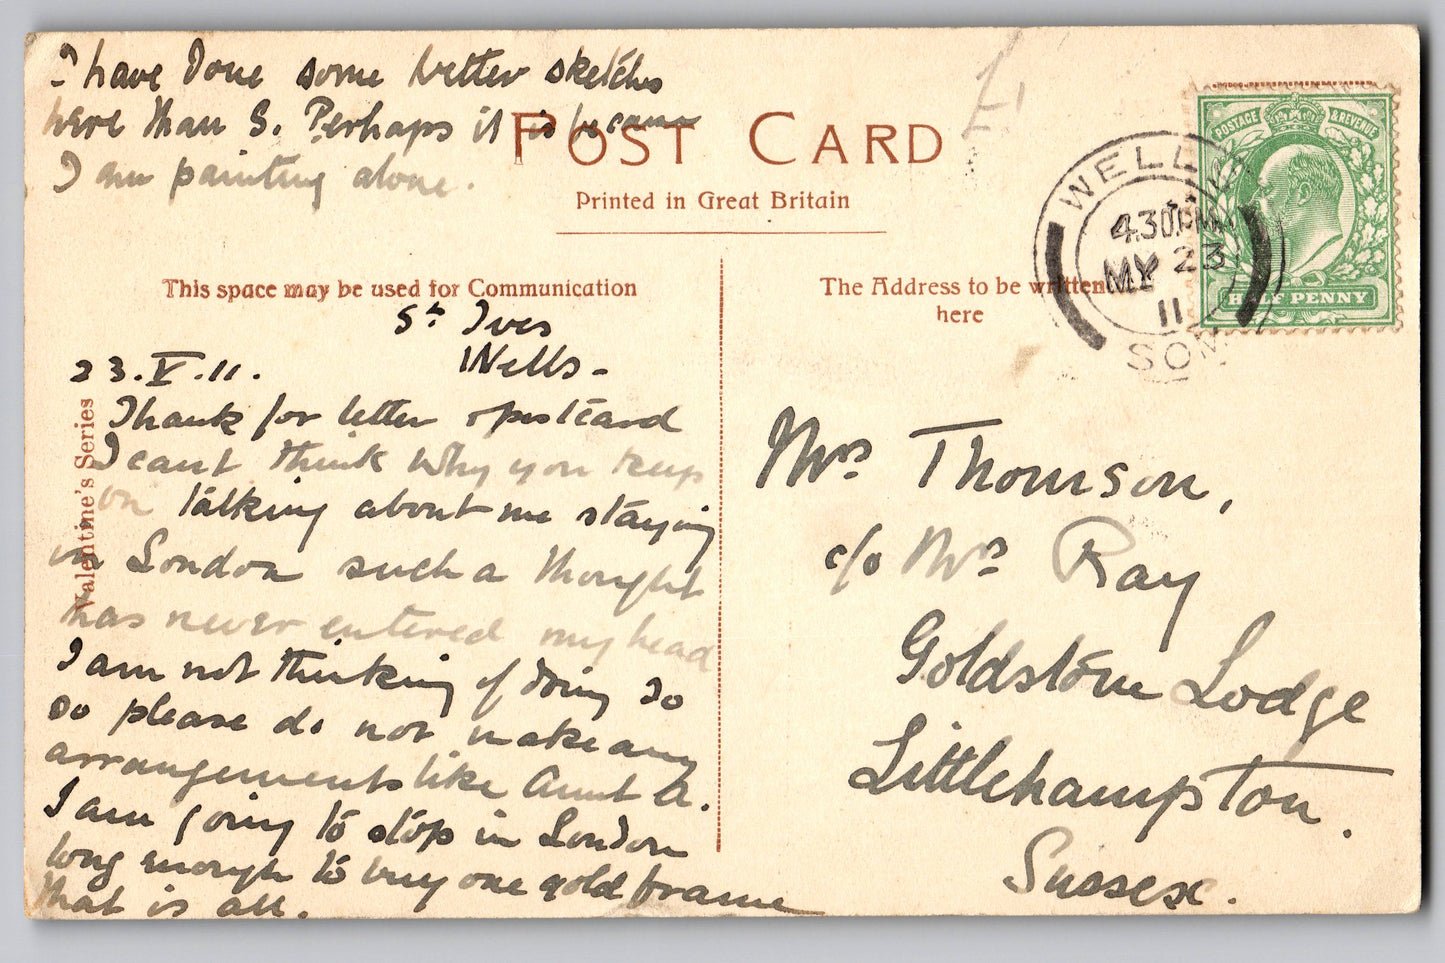 I have done some better sketches
here than S. Perhaps it is because
I am painting alone.
POST CARD
Printed in Great Britain
This space may be used for Communication
The Address to be written
here
POSTAGE & REVENUE
HALF PENNY
WELLS
4.30PM
MY 23
11
SOM
Valentine's Series
St Ives
Wells -
23.V.11.
Thank for letter & postcard
I cant think why you keep
on talking about me staying
in London such a thought
has never entered my head
I am not thinking of doing so
so please do not make any
arrangements like Aunt A.
I am going to stop in London
long enough to buy one gold frame
that is all.
Mrs Thomson,
c/o Mrs Ray
Goldstone Lodge
Littlehampton.
Sussex.